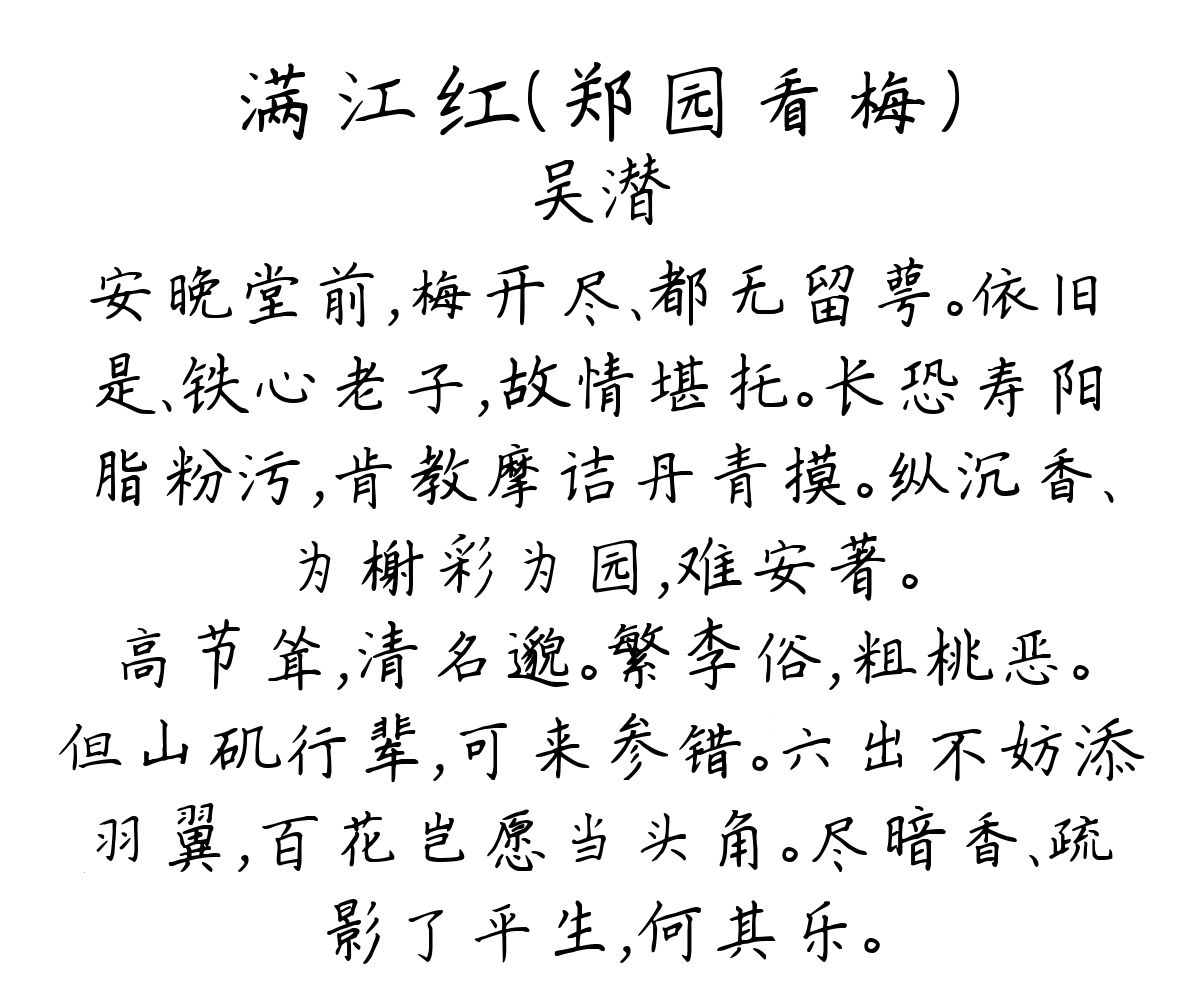 满江红(郑园看梅)
吴潜
安晚堂前,梅开尽、都无留萼。依旧
是、铁心老子,故情堪托。长恐寿阳
脂粉污,肯教摩诘丹青摸。纵沉香、
为榭彩为园,难安著。
高节耸,清名邈。繁李俗,粗桃恶。
但山矾行辈,可来参错。六出不妨添
羽翼,百花岂愿当头角。尽暗香、疏
影了平生,何其乐。